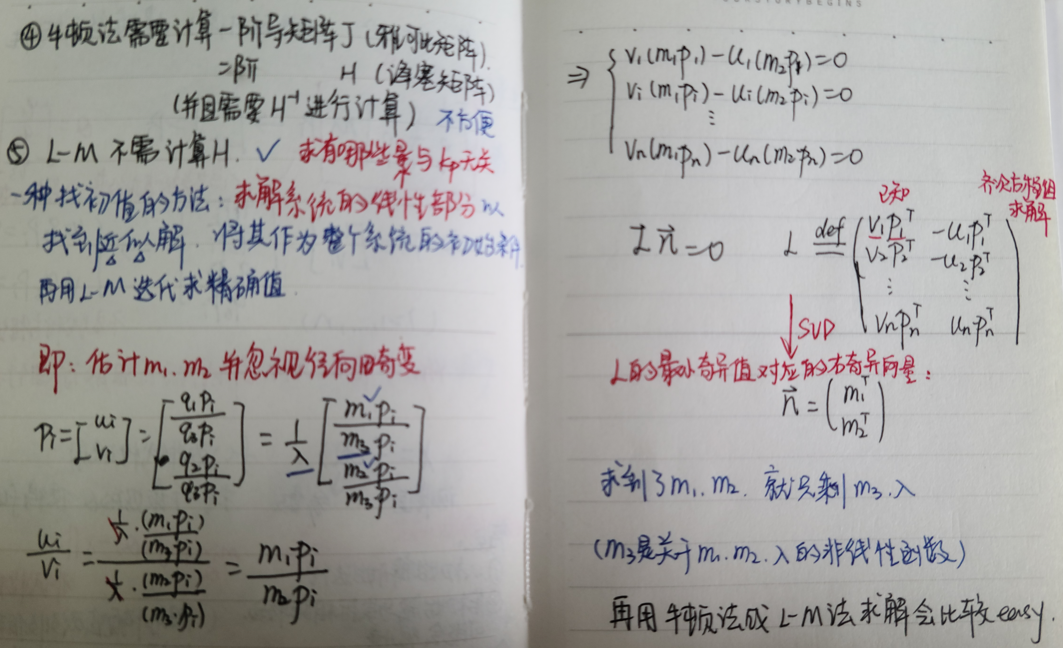 ④ 牛顿法需要计算一阶导矩阵J (雅可比矩阵)
二阶 H (海塞矩阵)
(并且需要 H⁻¹ 进行计算) 不方便
⑤ L-M 不需计算H. ✓ 求有哪些量与 Kp无关
一种找初值的方法：求解系统的线性部分以
找到近似解．将其作为整个系统的初始条件
再用L-M 迭代求精确值
即：估计m₁. m₂ 并忽视径向畸变
pᵢ = [uᵢ vᵢ] = [q₁pᵢ/q₃pᵢ q₂pᵢ/q₃pᵢ] = 1/λ [m₁pᵢ/m₃pᵢ m₂pᵢ/m₃pᵢ]
uᵢ/vᵢ = (1/λ·(m₁pᵢ)/(m₃pᵢ))/(1/λ·(m₂pᵢ)/(m₃·pᵢ)) = m₁pᵢ/m₂pᵢ
⇒ { v₁(m₁p₁) − u₁(m₂p₁) = 0
vᵢ(m₁pᵢ) − uᵢ(m₂pᵢ) = 0
⋮
vₙ(m₁pₙ) − uₙ(m₂pₙ) = 0
已知 齐次方程组
求解
L n⃗ = 0 L def= ( v₁p₁ᵀ −u₁p₁ᵀ
v₂p₂ᵀ −u₂p₂ᵀ
⋮ ⋮
vₙpₙᵀ uₙpₙᵀ )
SVD
L的最小奇异值对应的右奇异向量：
n⃗ = (m₁ᵀ m₂ᵀ)
求到了m₁. m₂. 就只剩m₃. λ
(m₃是关于m₁. m₂. λ的非线性函数)
再用牛顿法或 L-M 法求解会比较easy.